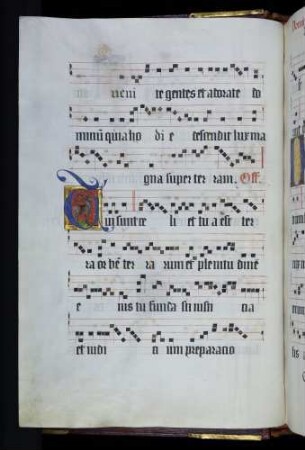 ueni te gentes et adorate do
minū quia ho di e descendit lux ma
gna super ter ram. Off.
Tui sunt ce li et tua est ter
ra orbē ter rarum et plenitu dinē
e ius tu funda sti iusti cia
et iudi ci um preparacio